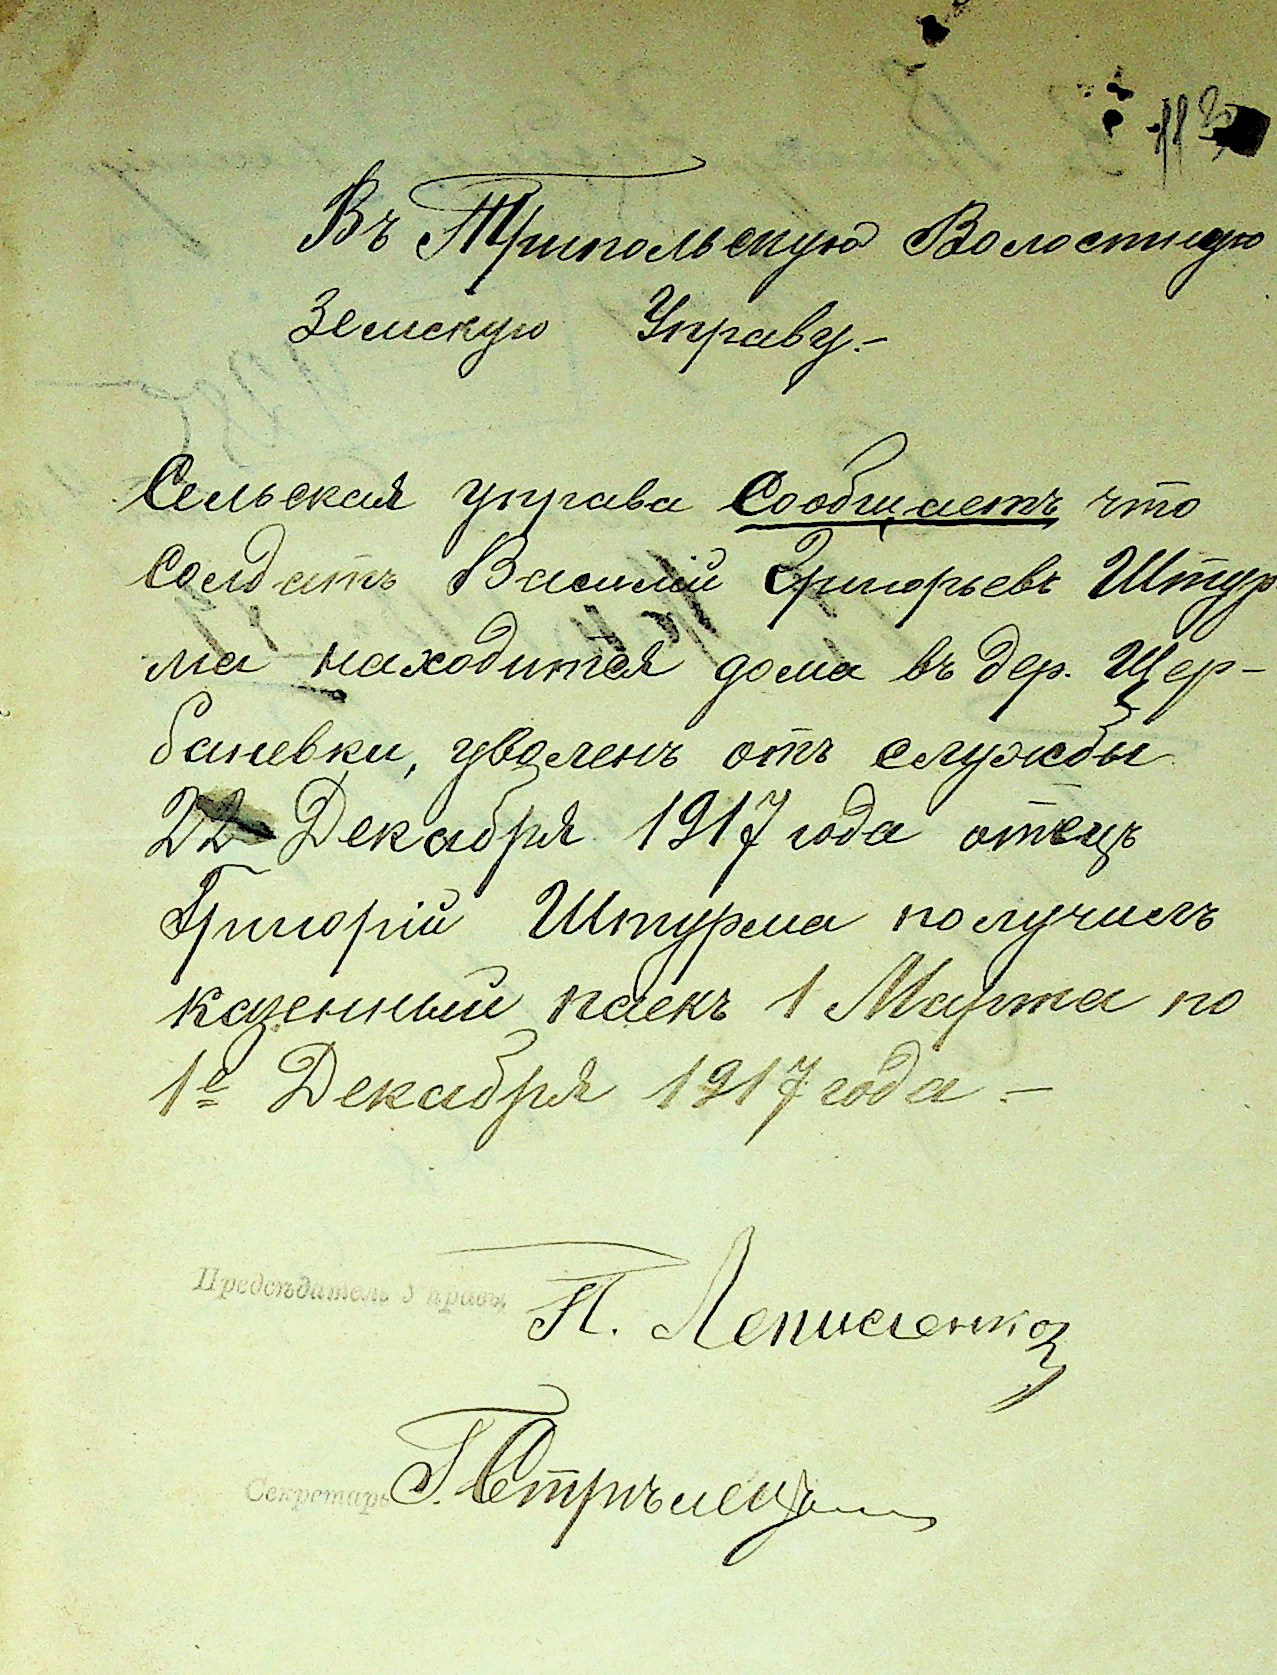 Въ Трипольскую Волостную
Земскую Управу.-
Сельская управа Сообщаетъ что
Солдатъ Василій Григорьевъ Штур
ма находится дома въ дер. Щер-
баневки, уволенъ отъ службы
22 Декабря 1917 года отецъ
Григорій Штурма получилъ
казенный паекъ 1 Марта по
1е Декабря 1917 года -
Предсѣдатель Управы
П.
Секретарь Г. Стрѣлец